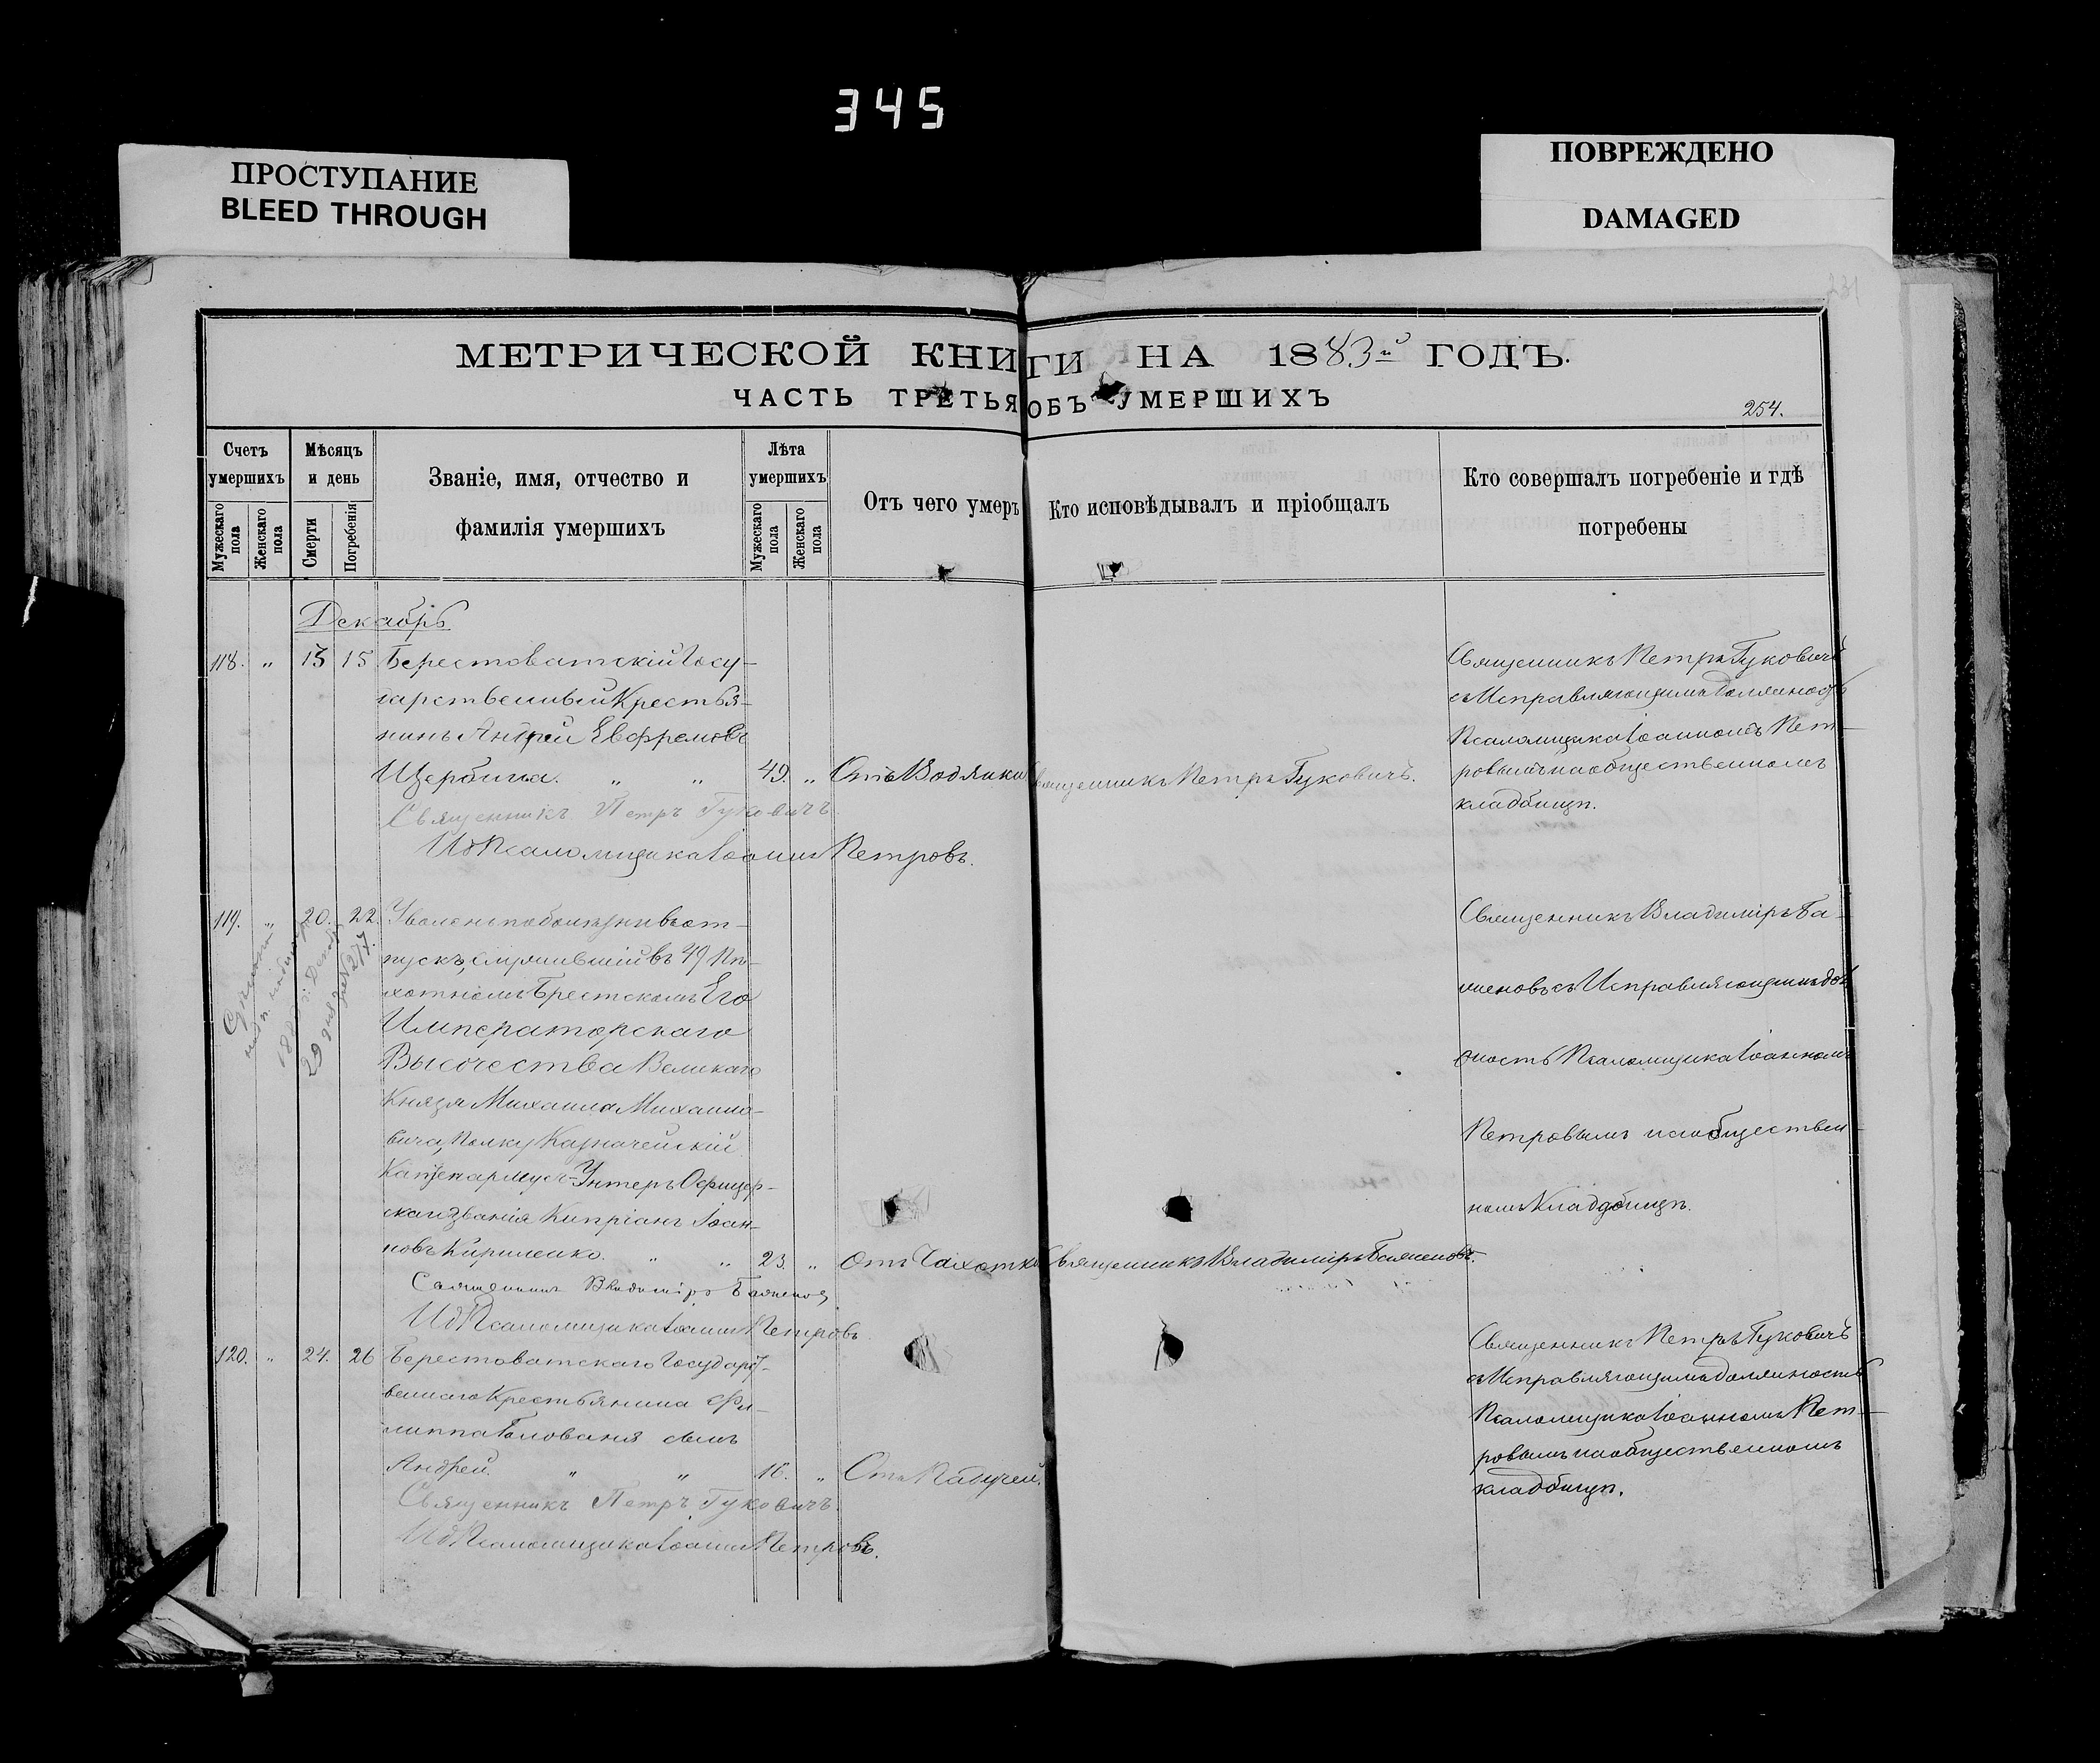 345
ПРОСТУПАНИЕ
BLEED THROUGH
ПОВРЕЖДЕНО
DAMAGED
МЕТРИЧЕСКОЙ КНИГИ НА 1883й ГОДЪ.
ЧАСТЬ ТРЕТЬЯ ОБЪ УМЕРШИХЪ
254.
Счетъ умершихъ
Мужескаго пола
Женскаго пола
Мѣсяцъ и день
Смерти
Погребенія
Званіе, имя, отчество и
фамилія умершихъ
Лѣта умершихъ
Мужескаго пола
Женскаго пола
Отъ чего умеръ
Кто исповѣдывалъ и пріобщалъ
Кто совершалъ погребеніе и гдѣ
погребены
Декабрь
118. " 13 15 Берестоватскій Госу-
дарственный Крестья-
нинъ Андрей Евфремовъ
Щербина. " " 49. " Отъ Водянки Священникъ Петръ Гуковичъ.
Священникъ Петръ Гуковичъ
Ид Псаломщика Іоаннъ Петровъ.
Священникъ Петръ Гуковичъ
съ Исправляющимъ должность
Псаломщика Іоанномъ Пет-
ровымъ на общественномъ
кладбищѣ.
119. " 20. 22. Уволенъ по болѣзни въ от-
пускъ, служившій въ 49 Пѣ-
хотномъ Брестскомъ Его
Императорскаго
Высочества Великаго
Князя Михаила Михаило-
вича, Полку Казначейскій
Каптенармусъ Унтеръ Офицер-
скаго званія Кипріанъ Іоан-
новъ Кириленко. " " 23. " Отъ Чахотки Священникъ Владиміръ Баженовъ.
Священникъ Владиміръ Баженовъ
Ид Псаломщика Іоаннъ Петровъ
Священникъ Владиміръ Ба-
женовъ съ Исправляющимъ дол
жность Псаломщика Іоанномъ
Петровымъ на обществен-
номъ Кладбищѣ.
120. " 24. 26 Берестоватскаго Государст-
веннаго Крестьянина Фи-
липпа Голованя сынъ
Андрей. " " " Отъ
Священникъ Петръ Гуковичъ
Ид Псаломщика Іоаннъ Петровъ.
Священникъ Петръ Гуковичъ
съ Исправляющимъ должность
Псаломщика Іоанномъ Пет-
ровымъ на общественномъ
кладбищѣ.